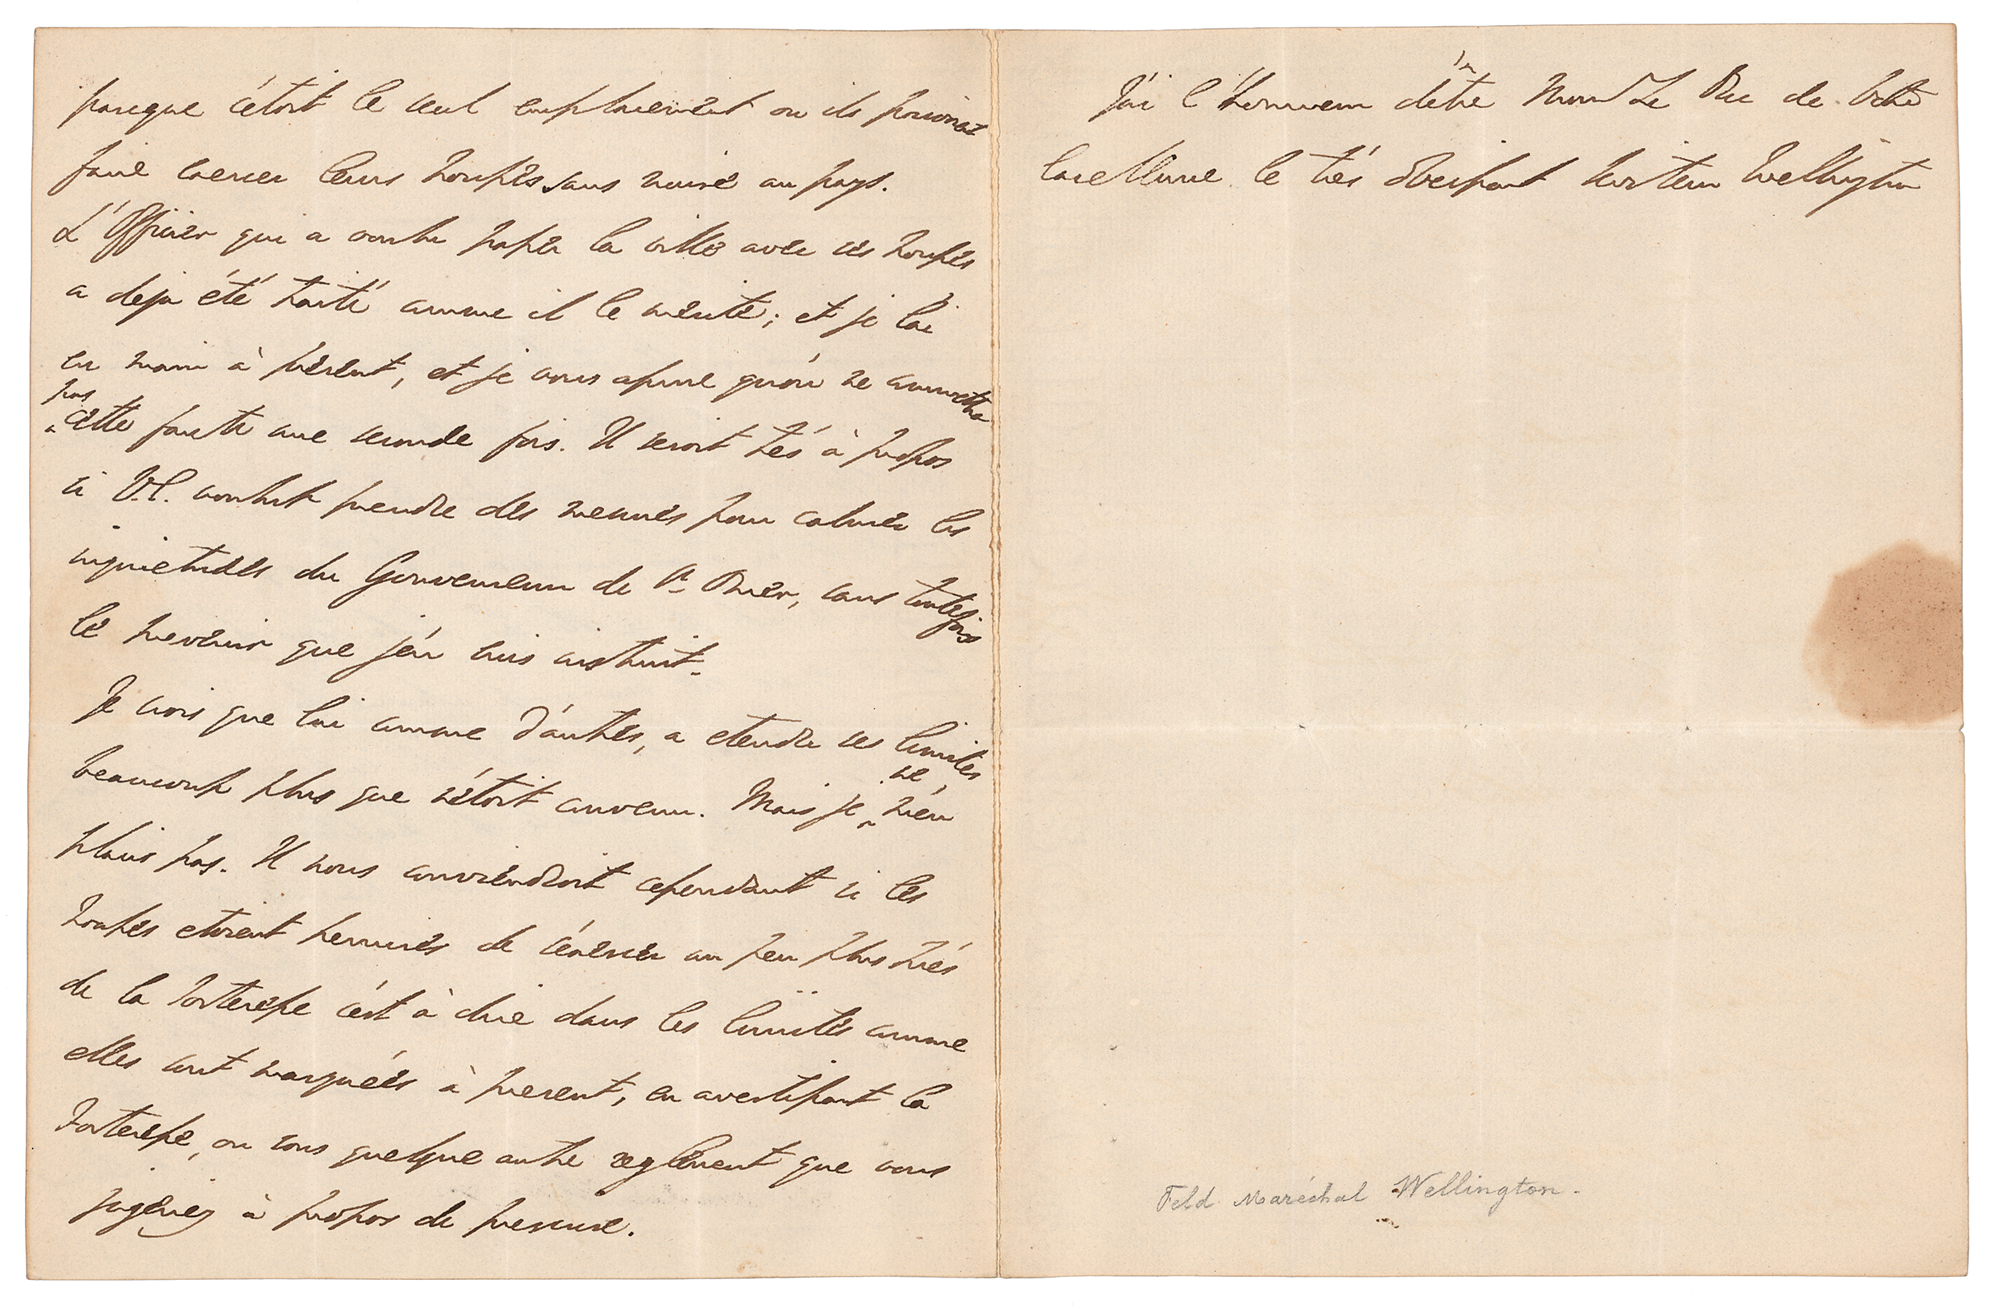 parceque c'etoit le seul emplacement ou ils pouvoient
faire exercer leurs troupes sans nuire au pays.
L'Officier qui a voulu passer la ville avec ses troupes
a deja été traité comme il le merite; et je l'ai
en main à présent, et je vous assure qu'on ne commettra
pas
cette faute une seconde fois. Il seroit trés à propos
si V.E. voulut prendre des mesures pour calmer les
inquietudes du Gouverneur de St Omer, sans toutefois
le prevenir que j'en suis instruit.
Je crois que lui comme d'autres, a etendu ses limites
beaucoup plus que n'étoit convenu. Mais je ne m'en
plains pas. Il nous conviendroit cependant si les
troupes etoient permises de s'exercer un peu plus prés
de la forteresse c'est à dire dans les limites comme
elles sont marquées à present, en avertissant la
forteresse, ou sous quelque autre reglement que vous
jugeriez à propos de prescrire.
J'ai l'honneur d'être Mons Le Duc de Votre
Excellence le trés Obeissant Serviteur Wellington
Feld Maréchal Wellington.